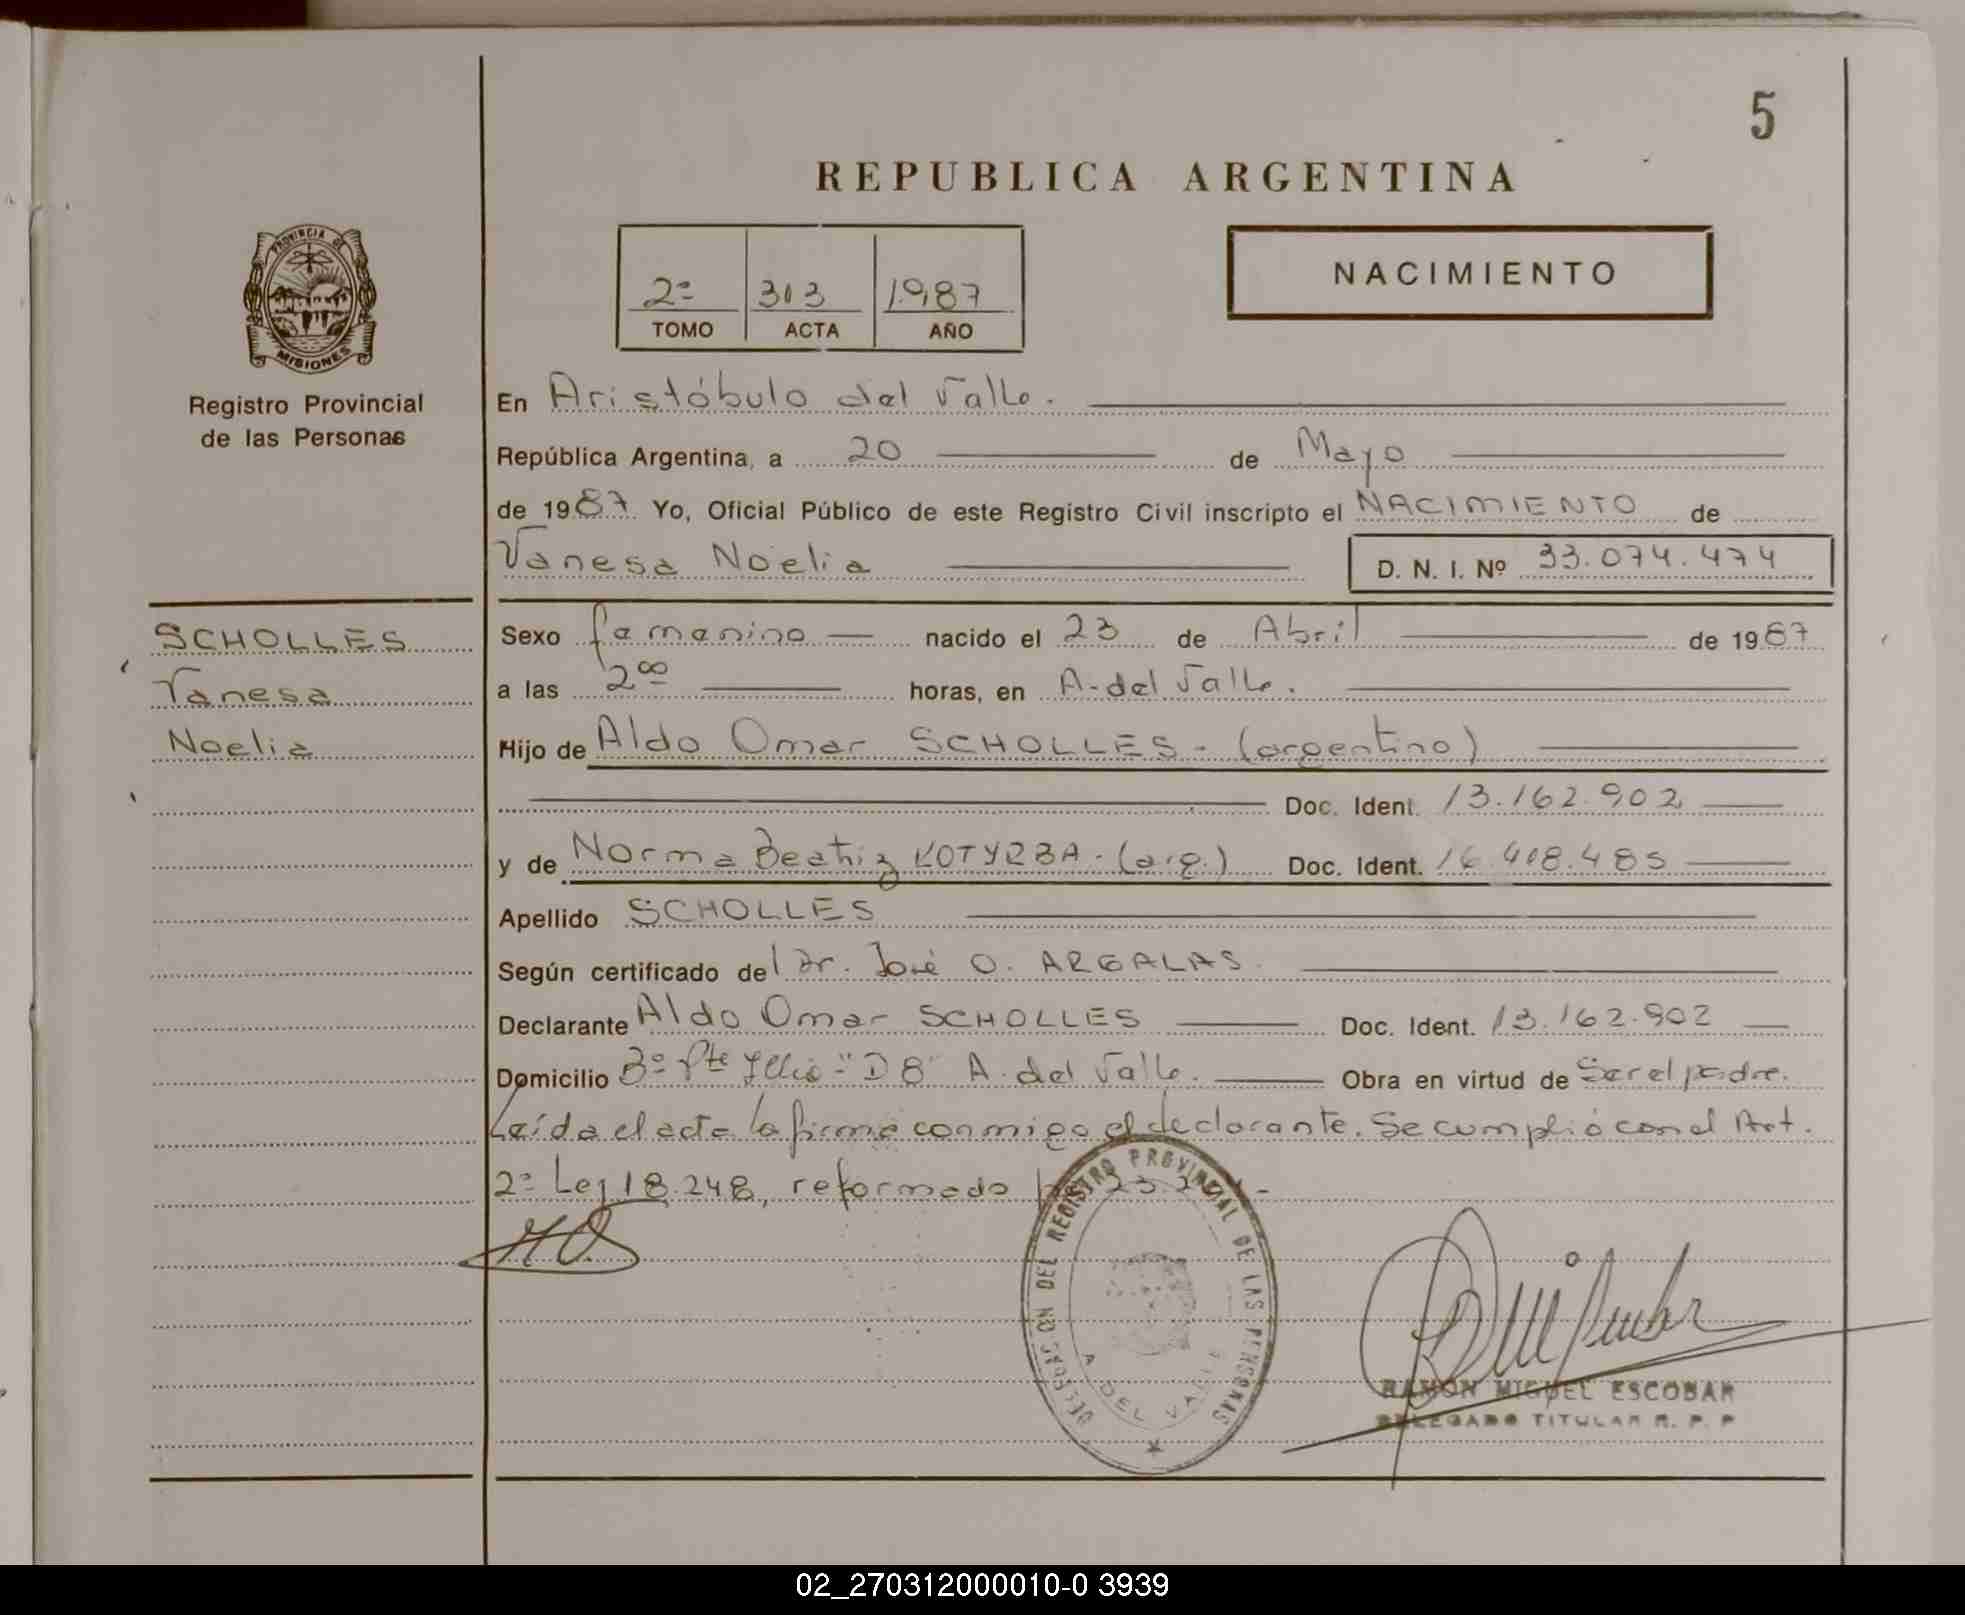 5
REPUBLICA ARGENTINA
PROVINCIA DE
MISIONES
Registro Provincial
de las Personas
2º 313 1987
TOMO ACTA AÑO
NACIMIENTO
En Aristóbulo del Valle.
República Argentina, a 20 de Mayo
de 1987 Yo, Oficial Público de este Registro Civil inscripto el NACIMIENTO de
Vanesa Noelia D. N. I. Nº 33.074.474
SCHOLLES
Vanesa
Noelia
Sexo femenino nacido el 23 de Abril de 1987
a las 2⁰⁰ horas, en A. del Valle.
Hijo de Aldo Omar SCHOLLES - (argentino)
Doc. Ident. 13.162.902
y de Norma Beatriz KOTYRBA - (arg.) Doc. Ident. 16.408.485
Apellido SCHOLLES
Según certificado del Dr. José O. ARGALAS.
Declarante Aldo Omar SCHOLLES Doc. Ident. 13.162.902
Domicilio Bº Pte Illia "D 8" A. del Valle. Obra en virtud de Ser el padre.
Leída el acta la firma conmigo el declarante. Se cumplió con el Art.
2º Ley 18.248, reformado
DELEGACION DEL REGISTRO PROVINCIAL DE LAS PERSONAS
A. DEL VALLE
RAMON MIGUEL ESCOBAR
DELEGADO TITULAR R. P. P
02_270312000010-0 3939